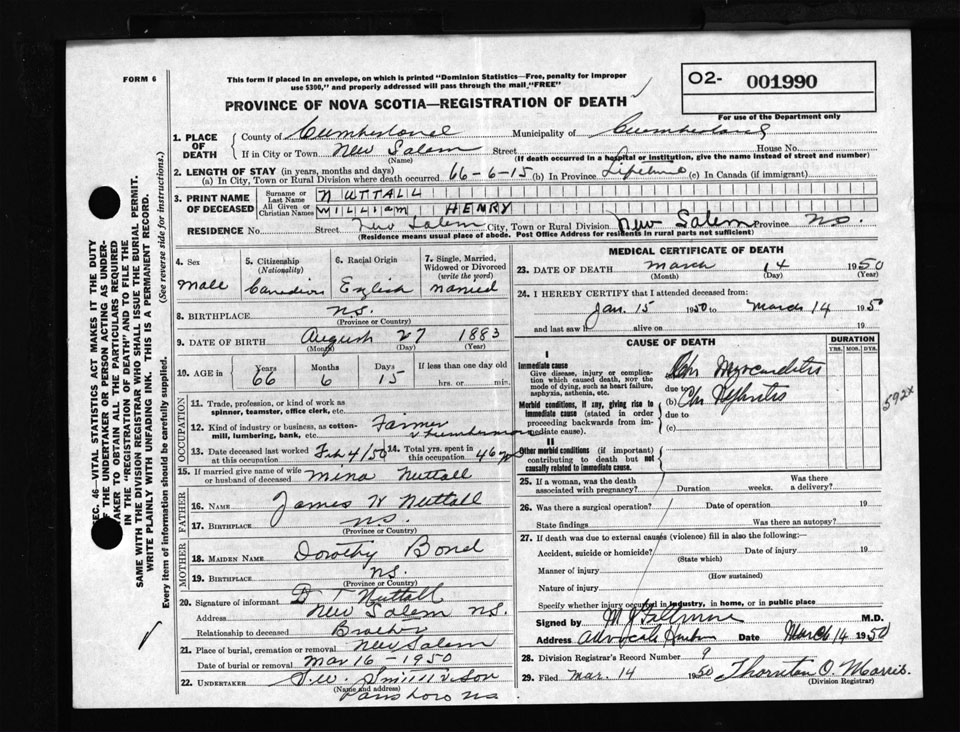 FORM 6
This form if placed in an envelope, on which is printed "Dominion Statistics—Free, penalty for improper
use $300," and properly addressed will pass through the mail, "FREE"
PROVINCE OF NOVA SCOTIA—REGISTRATION OF DEATH
O2- 001990
For use of the Department only
SEC. 46—VITAL STATISTICS ACT MAKES IT THE DUTY
OF THE UNDERTAKER OR PERSON ACTING AS UNDER-
TAKER TO OBTAIN ALL THE PARTICULARS REQUIRED
IN THE "REGISTRATION OF DEATH" AND TO FILE THE
SAME WITH THE DIVISION REGISTRAR WHO SHALL ISSUE THE BURIAL PERMIT.
WRITE PLAINLY WITH UNFADING INK. THIS IS A PERMANENT RECORD.
Every item of information should be carefully supplied. (See reverse side for instructions.)
1. PLACE OF DEATH County of Cumberland Municipality of Cumberland
If in City or Town New Salem Street House No.
(Name) (If death occurred in a hospital or institution, give the name instead of street and number)
2. LENGTH OF STAY (in years, months and days)
(a) In City, Town or Rural Division where death occurred 66-6-15 (b) In Province Lifetime (c) In Canada (if immigrant)
3. PRINT NAME OF DECEASED Surname or Last Name NUTTALL
All Given or Christian Names WILLIAM HENRY
RESIDENCE No. Street New Salem City, Town or Rural Division New Salem Province N.S.
(Residence means usual place of abode. Post Office Address for residents in rural parts not sufficient)
4. Sex Male
5. Citizenship (Nationality) Canadian
6. Racial Origin English
7. Single, Married, Widowed or Divorced (write the word) married
8. BIRTHPLACE N.S.
(Province or Country)
9. DATE OF BIRTH August 27 1883
(Month) (Day) (Year)
10. AGE in Years 66 Months 6 Days 15 If less than one day old hrs. or min.
OCCUPATION
11. Trade, profession, or kind of work as
spinner, teamster, office clerk, etc.
12. Kind of industry or business, as cotton-
mill, lumbering, bank, etc. Farmer
& Lumberman
13. Date deceased last worked at this occupation Feb 4/50 14. Total yrs. spent in this occupation 46
15. If married give name of wife
or husband of deceased Mina Nuttall
FATHER
16. NAME James W Nuttall
17. BIRTHPLACE N.S.
(Province or Country)
MOTHER
18. MAIDEN NAME Dorothy Bond
19. BIRTHPLACE N.S.
(Province or Country)
20. Signature of informant D T Nuttall
Address New Salem N.S.
Relationship to deceased Brother
21. Place of burial, cremation or removal New Salem
Date of burial or removal Mar 16 - 1950
22. UNDERTAKER & Son
(Name and address)
Parrsboro N.S.
MEDICAL CERTIFICATE OF DEATH
23. DATE OF DEATH March 14 1950
(Month) (Day) (Year)
24. I HEREBY CERTIFY that I attended deceased from:
Jan. 15 1950 to March 14 1950
and last saw h alive on 19
CAUSE OF DEATH
DURATION
YRS. MOS. DYS.
I
Immediate cause
Give disease, injury or complica-
tion which caused death, NOT the
mode of dying, such as heart failure,
asphyxia, asthenia, etc.
(a) Chr Myocarditis
due to
Morbid conditions, if any, giving rise to
immediate cause (stated in order
proceeding backwards from im-
mediate cause).
(b) Chr Nephritis
due to
(c)
592X
II
Other morbid conditions (if important)
contributing to death but not
causally related to immediate cause.
25. If a woman, was the death
associated with pregnancy? Duration weeks. Was there a delivery?
26. Was there a surgical operation? Date of operation 19
State findings Was there an autopsy?
27. If death was due to external causes (violence) fill in also the following:—
Accident, suicide or homicide? Date of injury 19
(State which)
Manner of injury
(How sustained)
Nature of injury
Specify whether injury occurred in industry, in home, or in public place
Signed by M.D.
Address Advocate Harbour Date March 14 1950
28. Division Registrar's Record Number 9
29. Filed Mar. 14 1950 Thornton O. Morris
(Division Registrar)